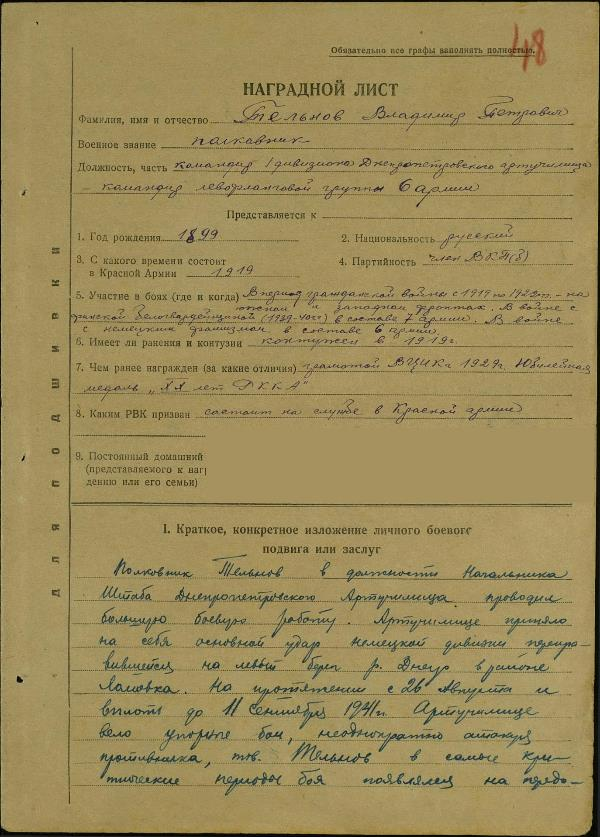 48
Обязательно все графы заполнять полностью.
НАГРАДНОЙ ЛИСТ
Фамилия, имя и отчество Тельнов Владимир Петрович
Военное звание полковник
Должность, часть командир 1 дивизиона Днепропетровского артучилища
– командир левофланговой группы 6 армии
Представляется к
1. Год рождения 1899 2. Национальность русский
3. С какого времени состоит
в Красной Армии 1919 4. Партийность член ВКП(б)
5. Участие в боях (где и когда) В период гражданской войны с 1919 по 1922 гг. – на
южной и западном фронтах. В войне с
финской белогвардейщиной (1939-40гг) в составе 7 армии. В войне
с немецким фашизмом в составе 6 армии.
6. Имеет ли ранения и контузии контужен в 1919г.
7. Чем ранее награжден (за какие отличия) грамотой ВЦИКа 1929г. Юбилейная
медаль „XX лет РККА"
8. Каким РВК призван состоит на службе в Красной армии
9. Постоянный домашний
(представляемого к наг
дению или его семьи)
I. Краткое, конкретное изложение личного боевого
подвига или заслуг
Полковник Тельнов в должности Начальника
Штаба Днепропетровского Артучилища проводил
большую боевую работу. Артучилище приняло
на себя основной удар немецкой дивизии перепра-
вившейся на левый берег р. Днепр в районе
Ломовка. На протяжении с 26 Августа и
вплоть до 11 сентября 1941г. Артучилище
вело упорные бои, неоднократно атакуя
противника, тов. Тельнов в самые кри-
тические периоды боя появлялся на передо-
ДЛЯ ПОДШИВКИ